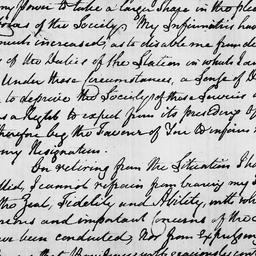 my Power to take a larger Share in the
of the Society. My Infirmities have
increased, as to disable me from
of the Duties of the Station in which I am
Under these Circumstances, a Sense of D
to deprive the Society of those Services
has a Right to expect from its President
therefore beg the Favour of You to
my Resignation.
On retiring from the Situation I ha
filled, I cannot refrain from bearing my
the Zeal, Fidelity and Ability, with wh
and important Concerns of the
have been conducted, Nor from Expressing